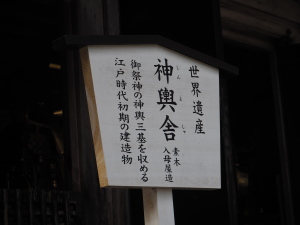 世界遺産
神輿舎
しんよしゃ
素木
入母屋造
御祭神の神輿三基を収める
江戸時代初期の建造物